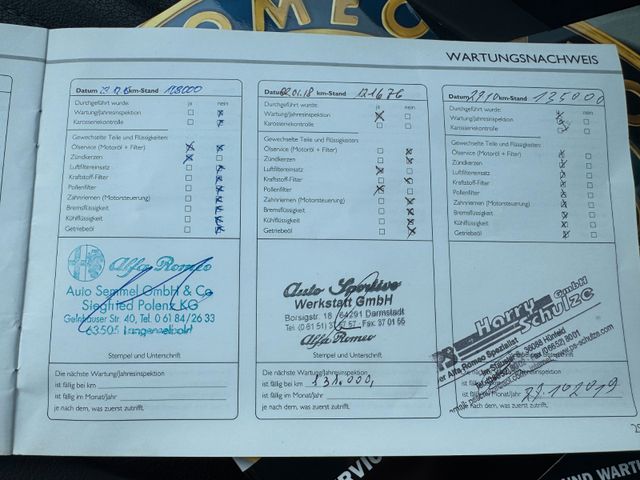 OMEO
WARTUNGSNACHWEIS
Datum km-Stand 118000
Durchgeführt wurde: ja nein
Wartung/Jahresinspektion
Karosseriekontrolle
Gewechselte Teile und Flüssigkeiten:
Ölservice (Motoröl + Filter)
Zündkerzen
Luftfiltereinsatz
Kraftstoff-Filter
Pollenfilter
Zahnriemen (Motorsteuerung)
Bremsflüssigkeit
Kühlflüssigkeit
Getriebeöl
Alfa Romeo
Auto Semmel GmbH & Co
Siegfried Polenz KG
Gelnhäuser Str. 40, Tel. 0 61 84/26 33
63505 Langenselbold
Stempel und Unterschrift
Die nächste Wartung/Jahresinspektion
ist fällig bei km
ist fällig im Monat/Jahr
je nach dem, was zuerst zutrifft.
Datum 02.01.18 km-Stand 121676
Durchgeführt wurde: ja nein
Wartung/Jahresinspektion
Karosseriekontrolle
Gewechselte Teile und Flüssigkeiten:
Ölservice (Motoröl + Filter)
Zündkerzen
Luftfiltereinsatz
Kraftstoff-Filter
Pollenfilter
Zahnriemen (Motorsteuerung)
Bremsflüssigkeit
Kühlflüssigkeit
Getriebeöl
Auto Sportivo
Werkstatt GmbH
Borsigstr. 18 / 64291 Darmstadt
Tel. (0 61 51) 37 57 57 Fax 37 01 55
Alfa Romeo
Stempel und Unterschrift
Die nächste Wartung/Jahresinspektion
ist fällig bei km 131.000,
ist fällig im Monat/Jahr
je nach dem, was zuerst zutrifft.
Datum 29.10 km-Stand 135000
Durchgeführt wurde: ja nein
Wartung/Jahresinspektion
Karosseriekontrolle
Gewechselte Teile und Flüssigkeiten:
Ölservice (Motoröl + Filter)
Zündkerzen
Luftfiltereinsatz
Kraftstoff-Filter
Pollenfilter
Zahnriemen (Motorsteuerung)
Bremsflüssigkeit
Kühlflüssigkeit
Getriebeöl
Harry GmbH
Schulze
er Alfa Romeo Spezialist
36088 Hünfeld
Stempel und Unterschrift
Die nächste Wartung/Jahresinspektion
ist fällig bei km
ist fällig im Monat/Jahr 29.10 2019
je nach dem, was zuerst zutrifft.
25
SERVIC
UND WARTU